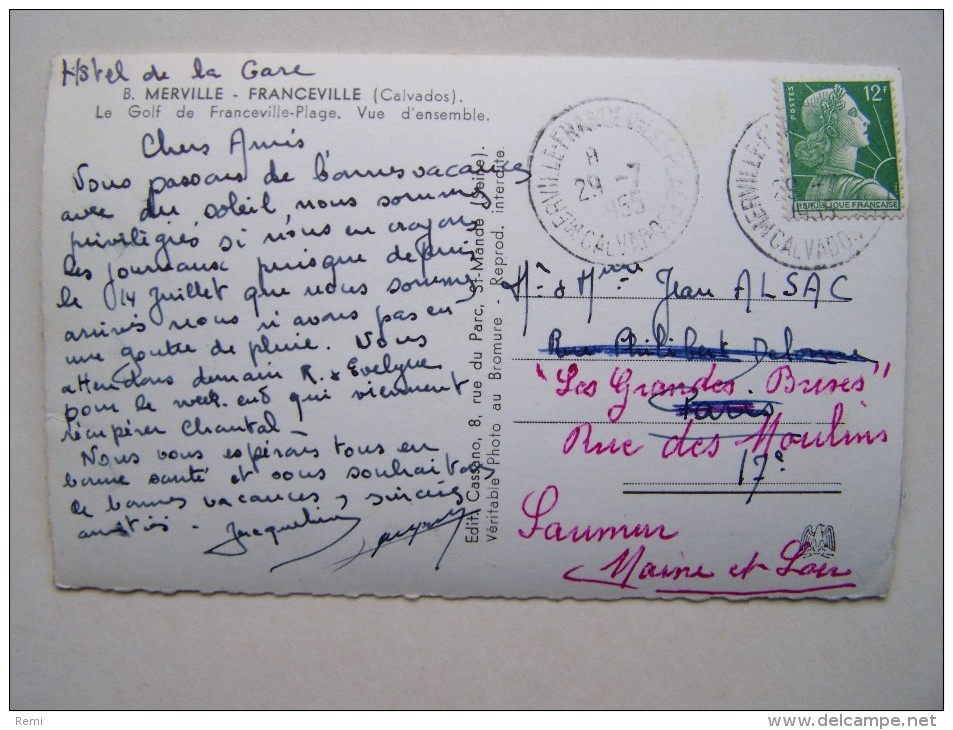 Hôtel de la Gare
B. MERVILLE - FRANCEVILLE (Calvados).
Le Golf de Franceville-Plage. Vue d'ensemble.
Chers Amis
Nous passons de bonnes vacances
avec du soleil, nous sommes
privilégiés si nous en croyons
les journaux puisque depuis
le 14 Juillet que nous sommes
arrivés nous n'avons pas eu
une goutte de pluie. Nous
attendons demain R. & Evelyne
pour le week-end qui viennent
récupérer Chantal -
Nous vous espérons tous en
bonne santé et vous souhaitons
de bonnes vacances, sincères
amitiés. Jacqueline
Edit. Cassano, 8, rue du Parc, ST-Mandé (Seine).
Véritable Photo au Bromure - Reprod. interdite.
MERVILLE-FRANCEVILLE-PLAGE
29 -7
1955
CALVADOS
MERVILLE-F
29
CALVADOS
POSTES
12F
REPUBLIQUE FRANCAISE
Mr & Mme Jean ALSAC
Rue Philibert Delorme
"Les Grandes Brises"
Paris
Rue des Moulins
17e
Saumur
Maine et Loire
Remi
http://www.delcampe.net